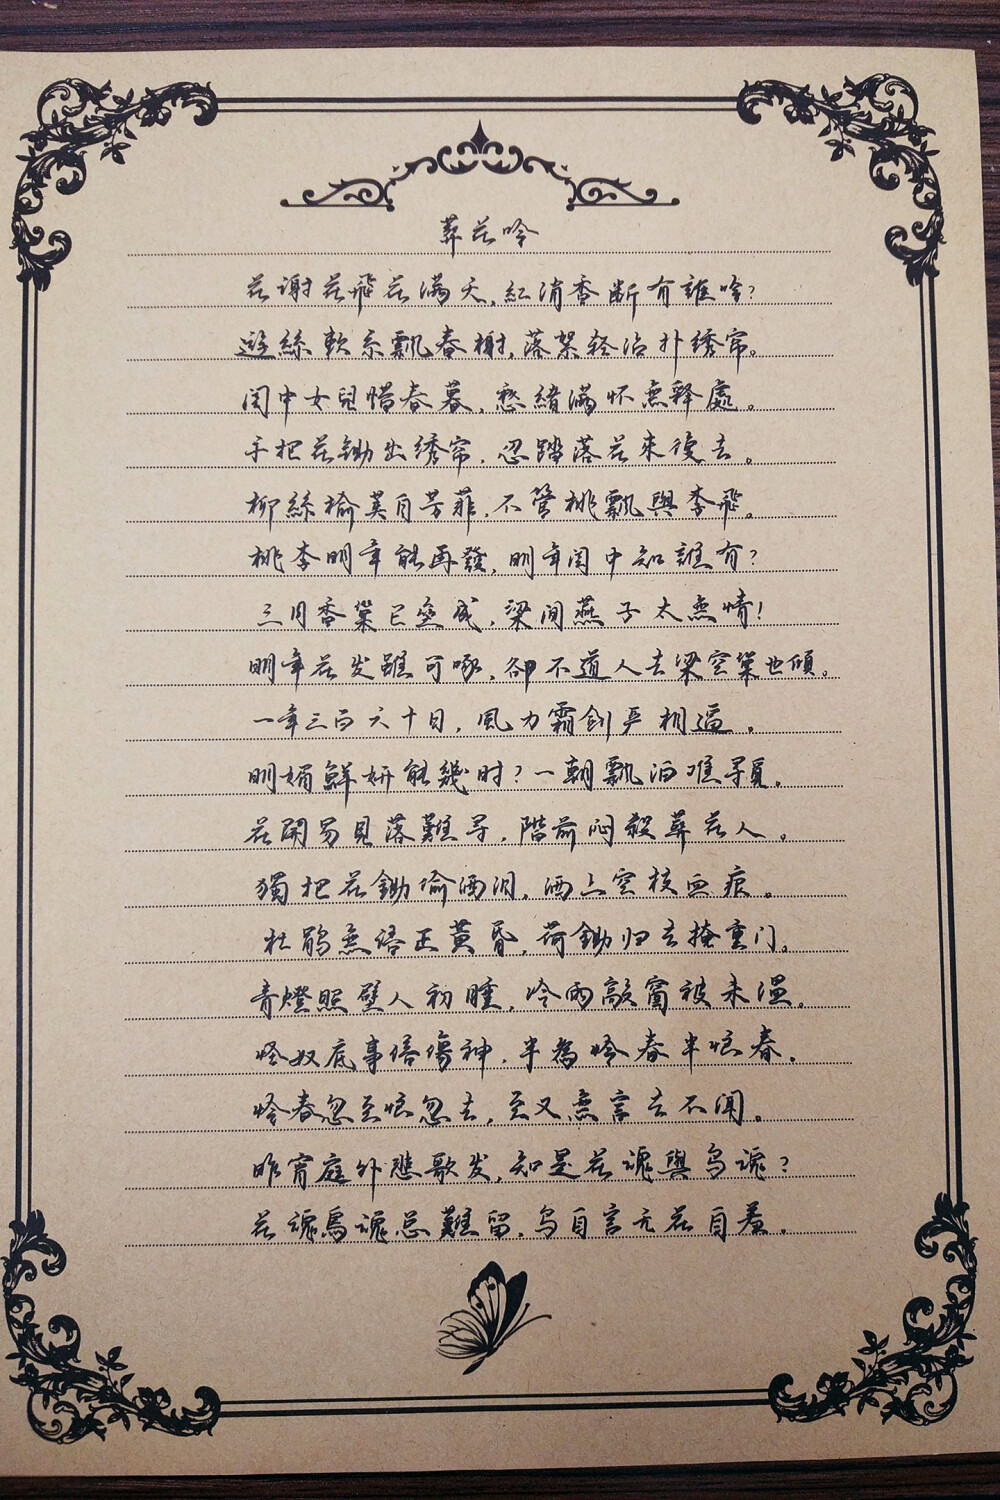 葬花吟
花谢花飛花满天,紅消香断有誰吟?
遊絲軟系飄春榭,落絮轻沾扑绣帘。
闺中女兒惜春暮,愁緒满怀無释處。
手把花鋤出绣帘,忍踏落花來復去。
柳絲榆荚自芳菲,不管桃飄與李飛。
桃李明年能再發,明年闺中知誰有?
三月香巢已壘成,梁间燕子太無情!
明年花发雖可啄,卻不道人去梁空巢也傾。
一年三百六十日,風力霜劍严相逼。
明媚鮮妍能幾时?一朝飄泊难寻覓。
花開易見落難寻,階前闷殺葬花人。
獨把花鋤偷洒泪,洒上空枝血痕。
杜鹃無语正黄昏,荷鋤归去掩重门。
青燈照壁人初睡,冷雨敲窗被未温。
怪奴底事倍傷神,半為怜春半恼春。
怜春忽至恼忽去,至又無言去不闻。
昨宵庭外悲歌发,知是花魂與鸟魂?
花魂鳥魂总難留,鸟自言无花自羞。